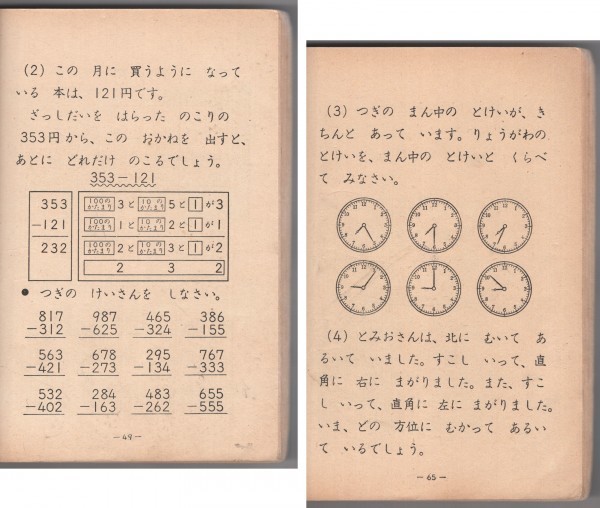 (2) この 月に 買うように なって
いる 本は、121円です。
ざっしだいを はらった のこりの
353円から、この おかねを 出すと、
あとに どれだけ のこるでしょう。
353-121
353 100のかたまり 3と 10のかたまり 5と 1が3
-121 100のかたまり 1と 10のかたまり 2と 1が1
232 100のかたまり 2と 10のかたまり 3と 1が2
2 3 2
● つぎの けいさんを しなさい。
817 987 465 386
-312 -625 -324 -155
563 678 295 767
-421 -273 -134 -333
532 284 483 655
-402 -163 -262 -555
-49-
(3) つぎの まん中の とけいが、き
ちんと あって います。りょうがわの
とけいを、まん中の とけいと くらべ
て みなさい。
(4) とみおさんは、北に むいて あ
るいて いました。すこし いって、直
角に 右に まがりました。また、すこ
し いって、直角に 左に まがりました。
いま、どの 方位に むかって あるい
て いるでしょう。
-65-